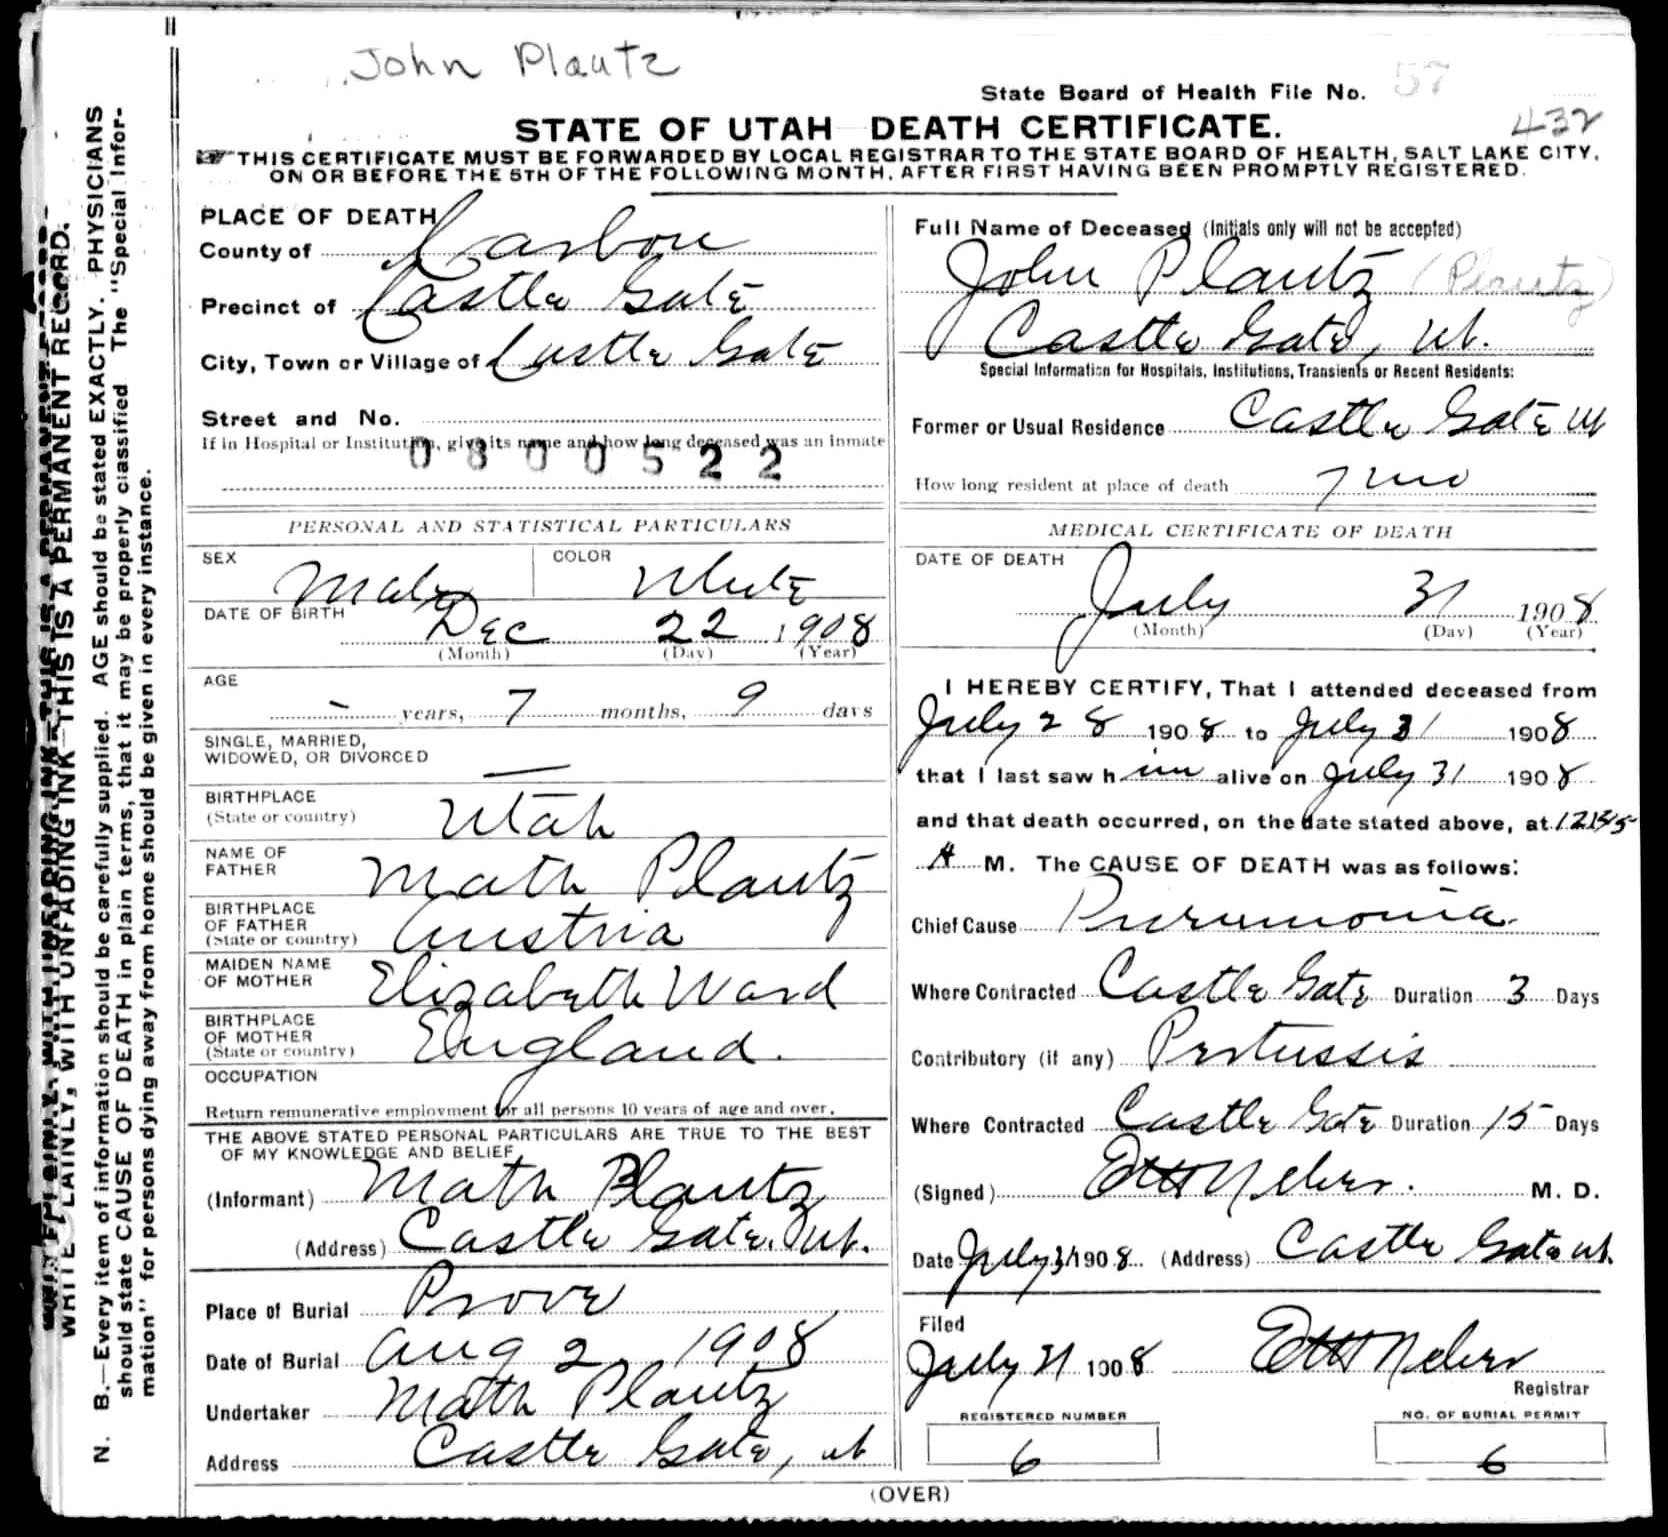 John Plautz
State Board of Health File No. 57
432
STATE OF UTAH DEATH CERTIFICATE.
THIS CERTIFICATE MUST BE FORWARDED BY LOCAL REGISTRAR TO THE STATE BOARD OF HEALTH, SALT LAKE CITY,
ON OR BEFORE THE 5TH OF THE FOLLOWING MONTH, AFTER FIRST HAVING BEEN PROMPTLY REGISTERED.
WRITE PLAINLY, WITH UNFADING INK—THIS IS A PERMANENT RECORD.
N. B.—Every item of information should be carefully supplied. AGE should be stated EXACTLY. PHYSICIANS
should state CAUSE OF DEATH in plain terms, that it may be properly classified The "Special Infor-
mation" for persons dying away from home should be given in every instance.
PLACE OF DEATH
County of Carbon
Precinct of Castle Gate
City, Town or Village of Castle Gate
Street and No.
If in Hospital or Institution, give its name and how long deceased was an inmate
0800522
PERSONAL AND STATISTICAL PARTICULARS
SEX Male COLOR White
DATE OF BIRTH Dec 22 1908
(Month) (Day) (Year)
AGE
- years, 7 months, 9 days
SINGLE, MARRIED,
WIDOWED, OR DIVORCED —
BIRTHPLACE
(State or country) Utah
NAME OF
FATHER Math Plautz
BIRTHPLACE
OF FATHER
(State or country) Austria
MAIDEN NAME
OF MOTHER Elizabeth Ward
BIRTHPLACE
OF MOTHER
(State or country) England.
OCCUPATION
Return remunerative employment for all persons 10 years of age and over.
THE ABOVE STATED PERSONAL PARTICULARS ARE TRUE TO THE BEST
OF MY KNOWLEDGE AND BELIEF
(Informant) Math Plautz
(Address) Castle Gate, Ut.
Place of Burial Provo
Date of Burial Aug 2, 1908
Undertaker Math Plautz
Address Castle Gate, Ut
Full Name of Deceased (Initials only will not be accepted)
John Plautz (Plautz)
Castle Gate, Ut.
Special Information for Hospitals, Institutions, Transients or Recent Residents:
Former or Usual Residence Castle Gate Ut
How long resident at place of death 7 mo
MEDICAL CERTIFICATE OF DEATH
DATE OF DEATH
July 31 1908
(Month) (Day) (Year)
I HEREBY CERTIFY, That I attended deceased from
July 28 1908 to July 31 1908
that I last saw him alive on July 31 1908
and that death occurred, on the date stated above, at
A M. The CAUSE OF DEATH was as follows:
Chief Cause Pneumonia.
Where Contracted Castle Gate Duration 3 Days
Contributory (if any) Pertussis
Where Contracted Castle Gate Duration 15 Days
(Signed) M. D.
Date July 31 1908 (Address) Castle Gate Ut.
Filed
July 31 1908
Registrar
REGISTERED NUMBER
6
NO. OF BURIAL PERMIT
6
(OVER)